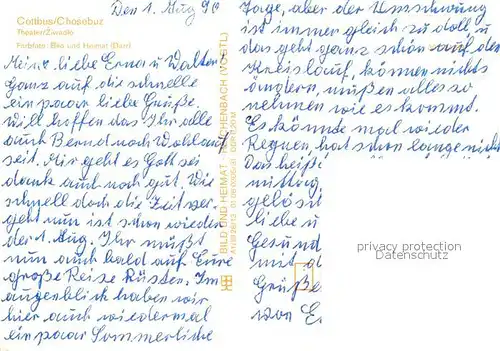 Cottbus/Chosebuz
Theater/Źiwadło
Farbfoto: Bild und Heimat (Darr)
Den 1. Aug 90
Meine liebe Erna u Walter
Ganz auf die schnelle
ein paar liebe Grüße.
Will hoffen das Ihr alle
auch Bernd noch Wohlauf
seit. Mir geht es Gott sei
dank auch noch gut. Wie
schnell doch die Zeit ver-
geht nun ist schon wieder
der 1. Aug. Ihr müßt
nun auch bald auf Eure
große Reise Rüsten. Im
augenblick haben wir
hier auch wiedermal
ein paar Sommerliche
BILD UND HEIMAT REICHENBACH (VOGTL)
Tage, aber der Umschwung
ist immer gleich zu doll u
das geht ganz schön auf den
Kreislauf, können nichts
ändern, müßen alles so
nehmen wie es kommt.
Es könnde mal wieder
Regnen hat schon lange nicht
Das heißt
mittag
gelöst
liebe u
Gesund
mit
Grüße
von E.
privacy protection
Datenschutz